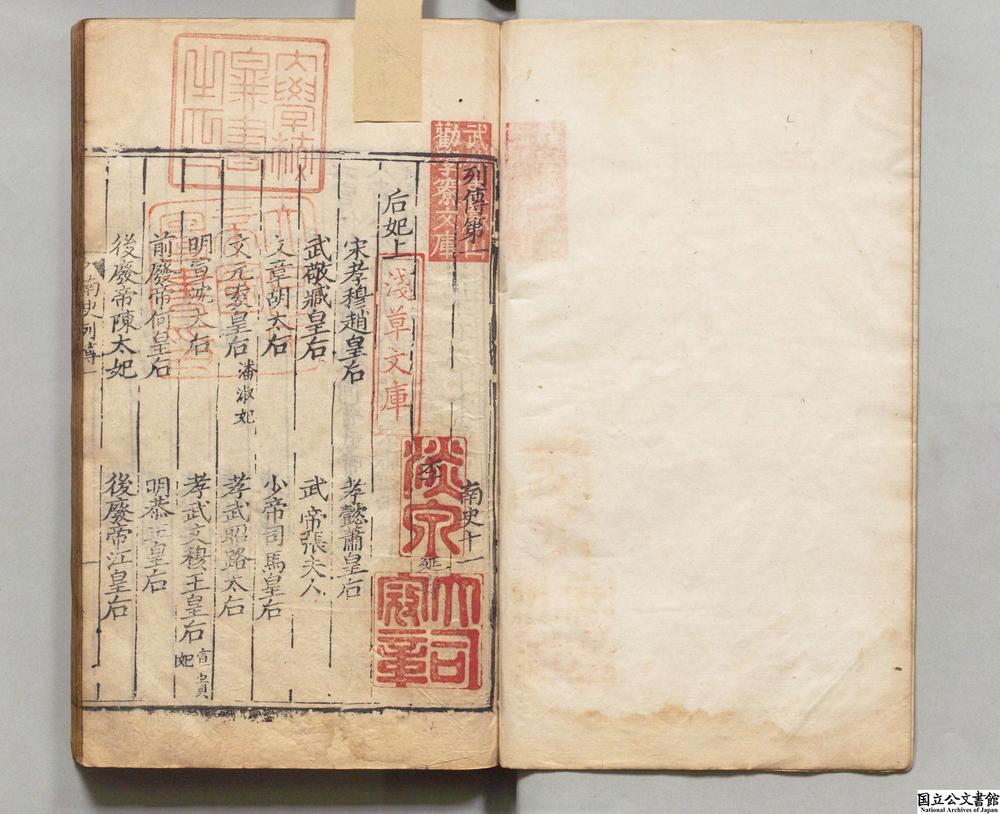 列傳第一
南史十一
后妃上
宋孝穆趙皇后
孝懿蕭皇后
武敬臧皇后
武帝張夫人
文章胡太后
少帝司馬皇后
文元袁皇后 潘淑妃
孝武昭路太后
明宣沈太后
孝武文穆王皇后 宣貴妃
前廢帝何皇后
明恭王皇后
後廢帝陳太妃
後廢帝江皇后
南史列傳一
一
淺草文庫
大司寇章
國立公文書館
National Archives of Japan